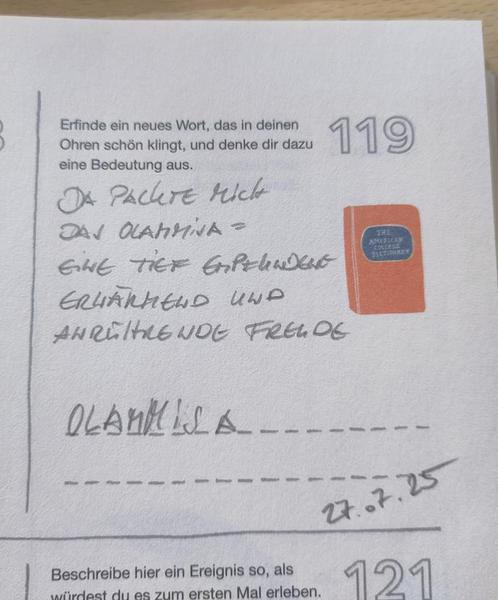 Erfinde ein neues Wort, das in deinen
Ohren schön klingt, und denke dir dazu
eine Bedeutung aus.
119
DA PACKTE MICH
DAS OLAMMISA =
EINE TIEF EMPFUNDENE
ERWÄRMEND UND
ANRÜHRENDE FREUDE
THE
AMERICAN
COLLEGE
DICTIONARY
OLAMMISA
27.07.25
Beschreibe hier ein Ereignis so, als
würdest du es zum ersten Mal erleben.
121